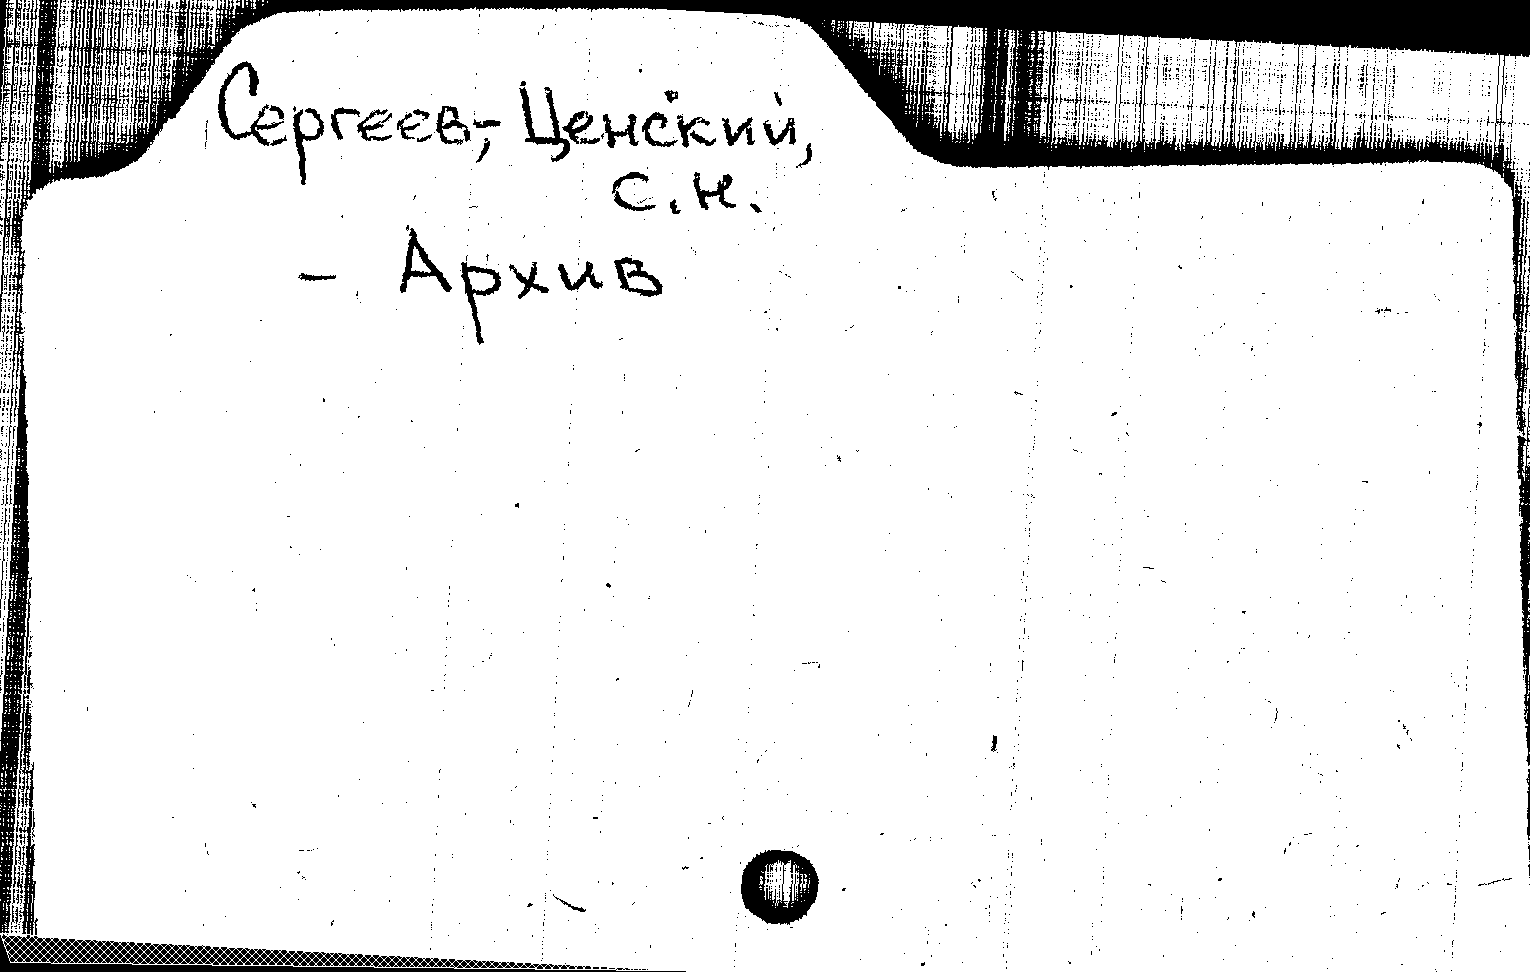 Сергеев,-Ценский,
С.Н.
- Архив